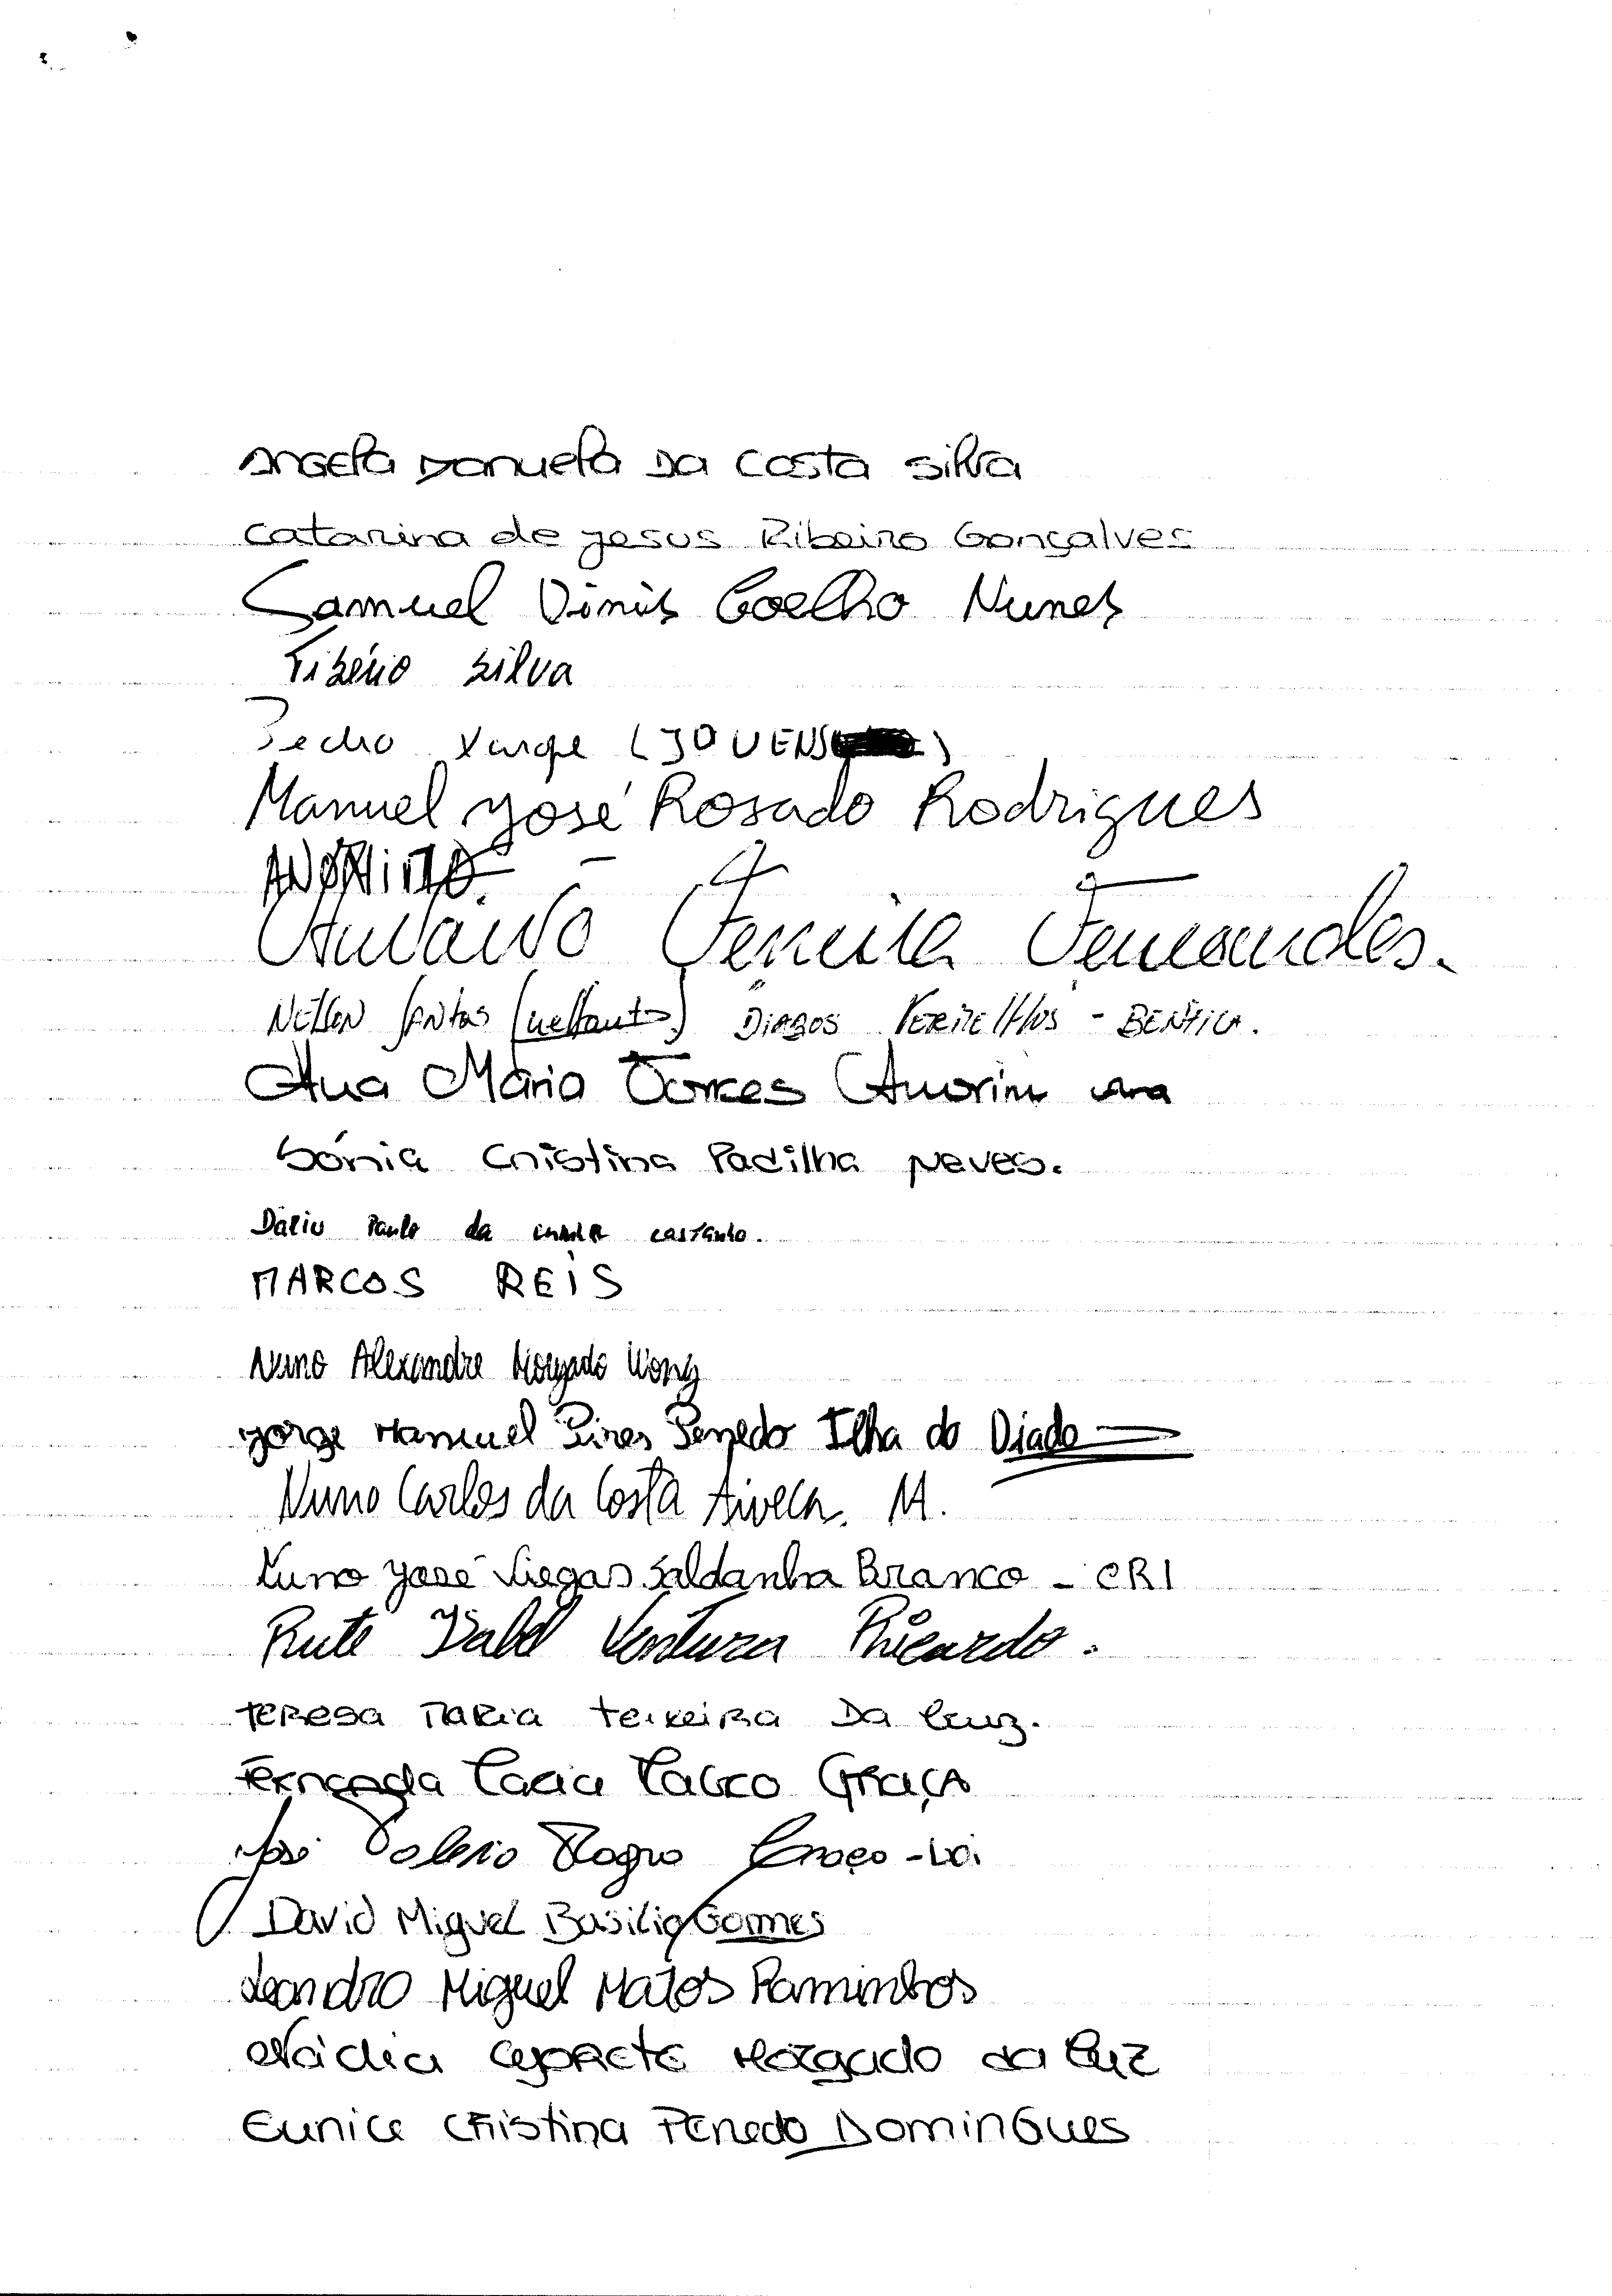 Angela Manuela Da Costa Silva
Catarina de Jesus Ribeiro Gonçalves
Samuel Dinis Coelho Nunes
Tibério Silva
Pedro (JOVENS)
Manuel José Rosado Rodrigues
ANONIMO
António Ferreira Fernandes.
Nelson Santos Diabos Vermelhos - Benfica.
Ana Maria Torres Amorim
Sónia Cristina Padilha Neves.
Dário Paulo da Cunha Castanho.
MARCOS REIS
Nuno Alexandre Morgado Wong
Jorge Manuel Pires Penedo Ilha do Diabo
Nuno Carlos da Costa M.
Nuno José Viegas Saldanha Branco - CRI
Rute Isabel Ventura Ricardo.
Teresa Maria Teixeira Da Cruz.
Fernanda Graça
José
David Miguel Basilio Gomes
Leandro Miguel Matos Raminhos
Nádia Morgado da Luz
Eunice Cristina Penedo Domingues